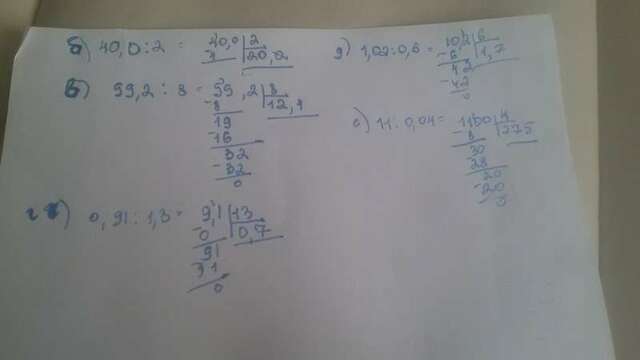 б) 40,0 : 2 = 40,0 | 2
4 | 20,2
в) 99,2 : 8 = 99,2 | 8
- 8 | 12,4
19
- 16
32
- 32
0
г) 0,91 : 1,3 = 9,1 | 13
- 0 | 0,7
91
- 91
0
д) 1,02 : 0,6 = 10,2 | 6
- 6 | 1,7
42
- 42
0
е) 11 : 0,04 = 1100 | 4
- 8 | 275
30
28
20
- 20
0